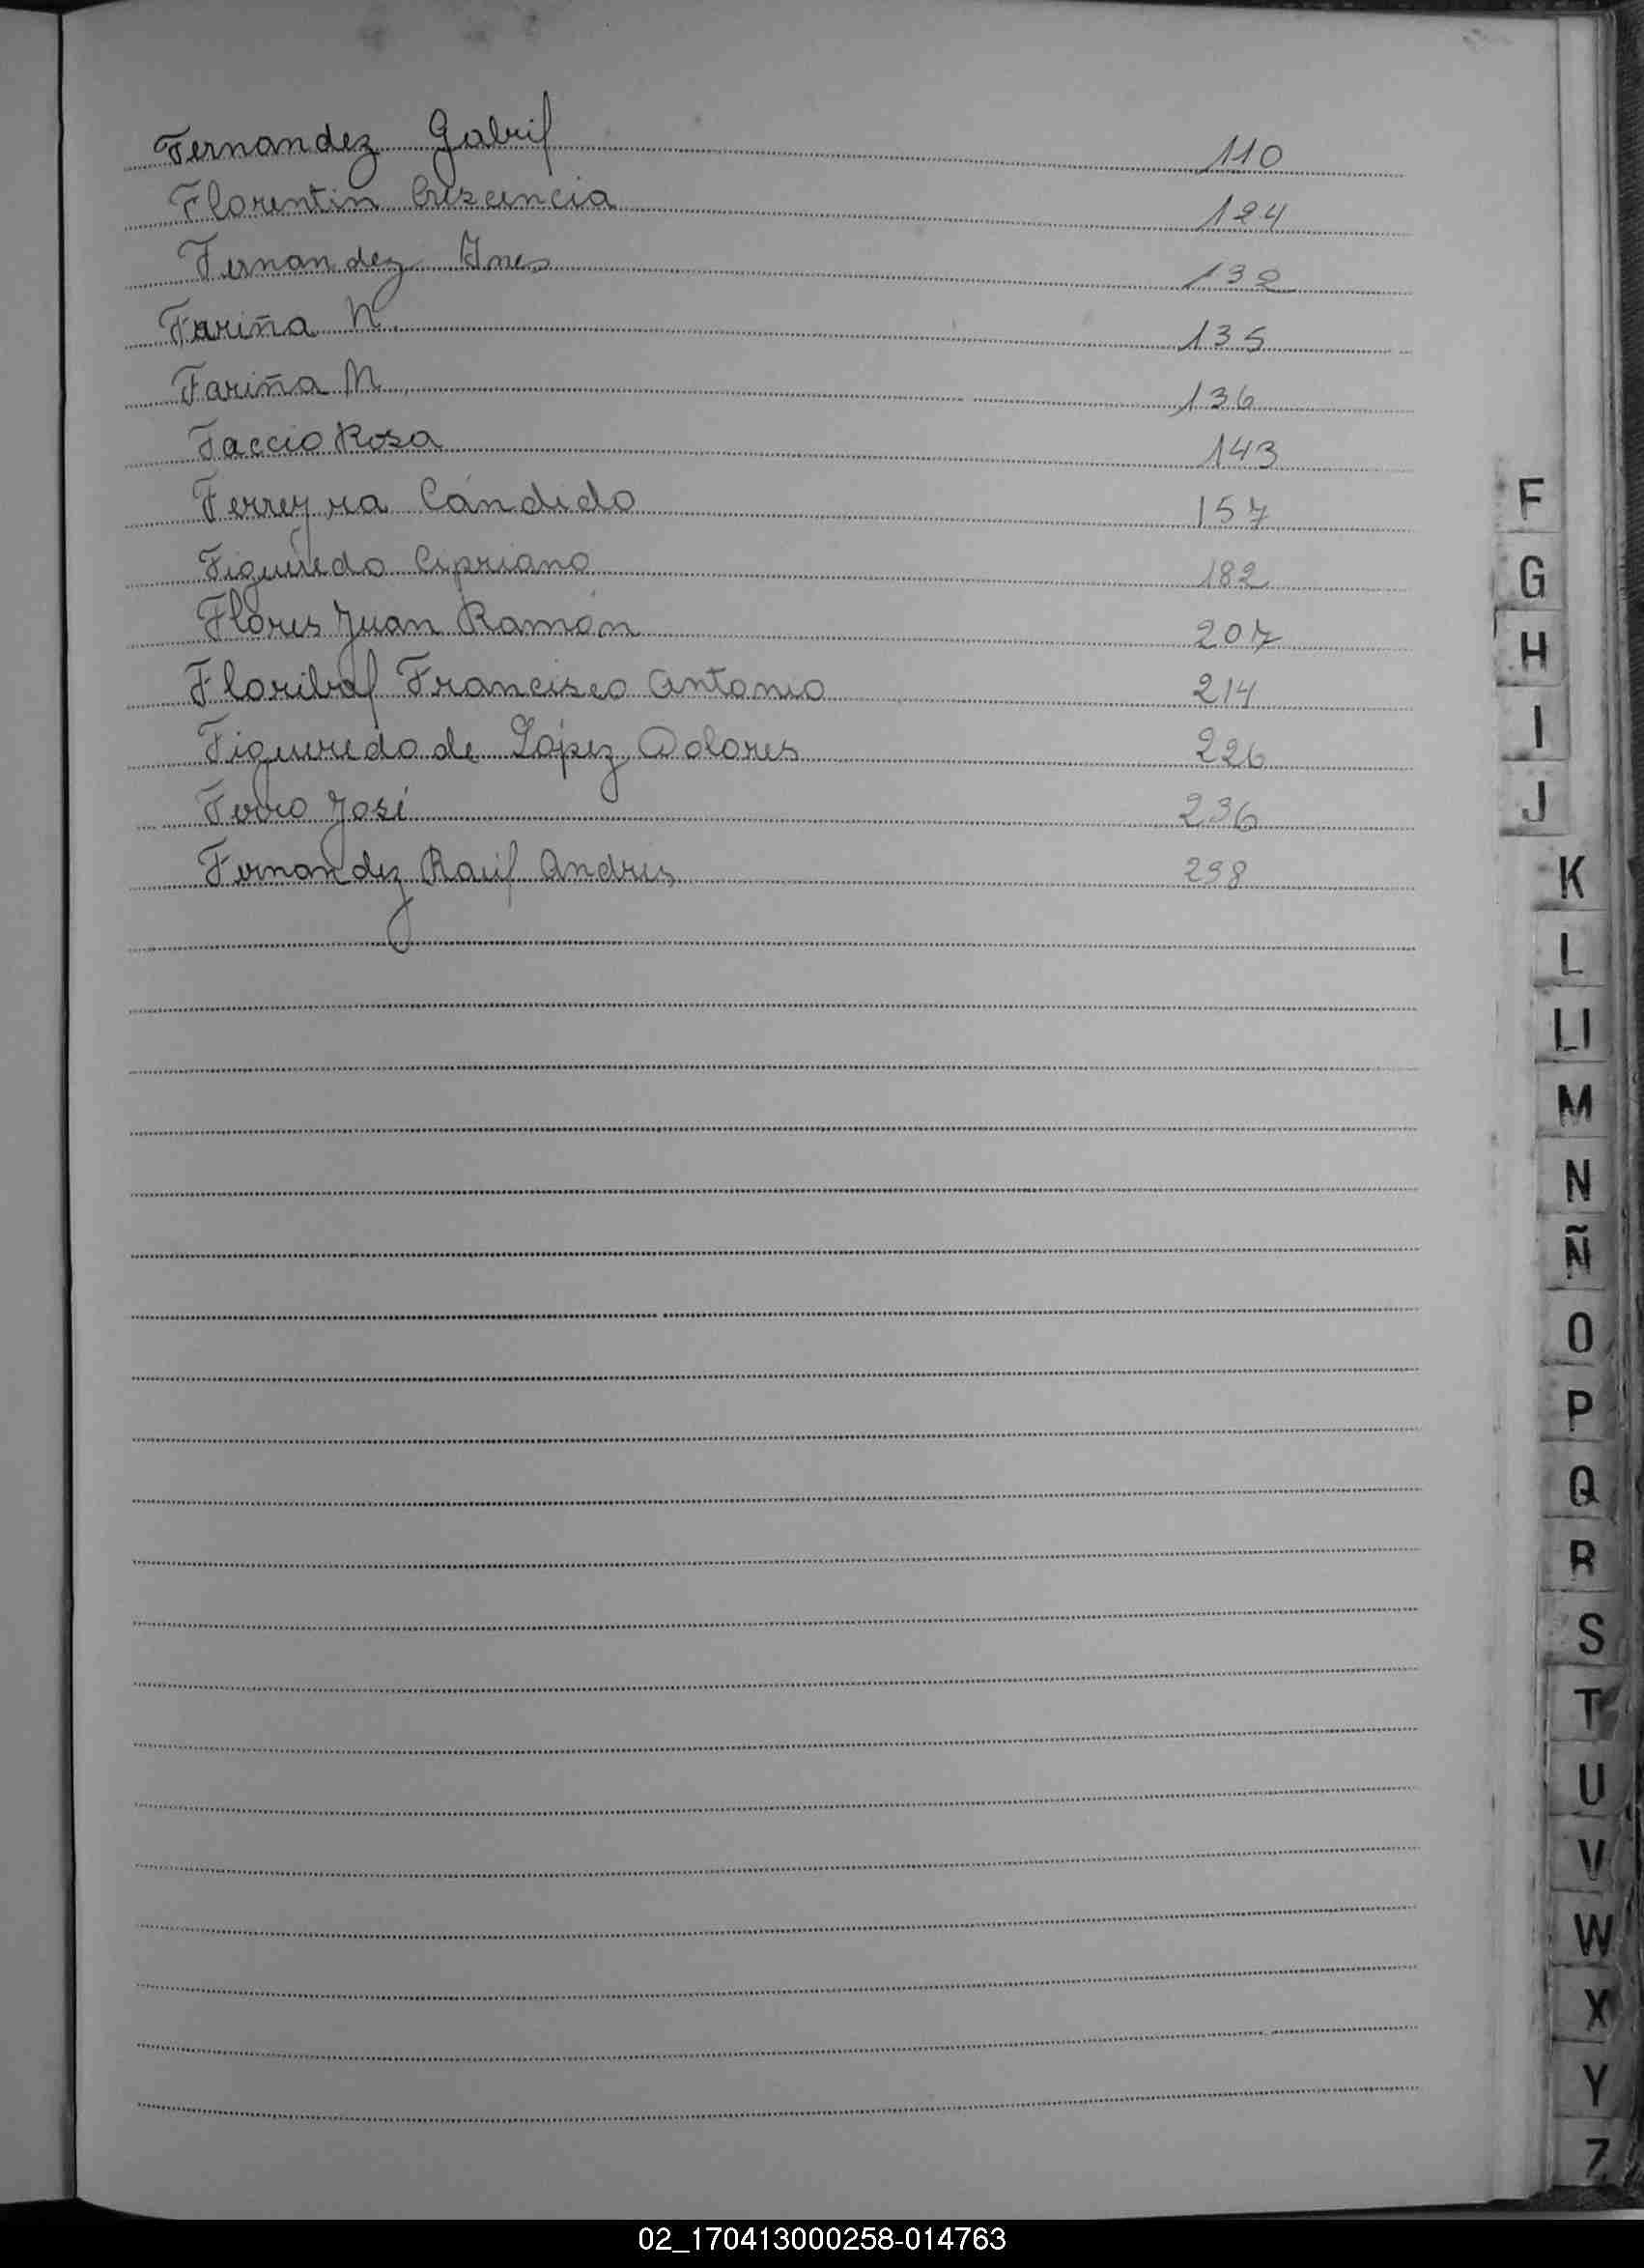 Fernandez Gabriel 110
Florentin Crescencia 124
Fernandez Ines 132
Fariña N. 135
Fariña N. 136
Faccio Rosa 143
Ferreyra Cándido 157
Figueredo Cipriano 182
Flores Juan Ramón 207
Floribal Francisco Antonio 214
Figueredo de López Dolores 226
Ferro José 236
Fernandez Raúl Andres 298
F
G
H
I
J
K
L
Ll
M
N
Ñ
O
P
Q
R
S
T
U
V
W
X
Y
Z
02_170413000258-014763